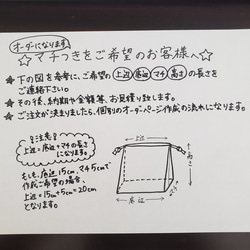 オーダーになります。
☆マチつきをご希望のお客様へ☆
★下の図を参考に、ご希望の上辺 底辺 マチ 高さの長さを
ご連絡下さい。
★その後、納期や金額等、お見積り致します。
★ご注文が決まりましたら、個別のオーダーページ作成の流れになります。
※注意※
上辺=底辺+マチの長さ
になります。
もしも、底辺15cm、マチ5cmで
作成ご希望の場合、
上辺=15cm+5cm=20cm
となります。
上辺
高さ
マチ
底辺